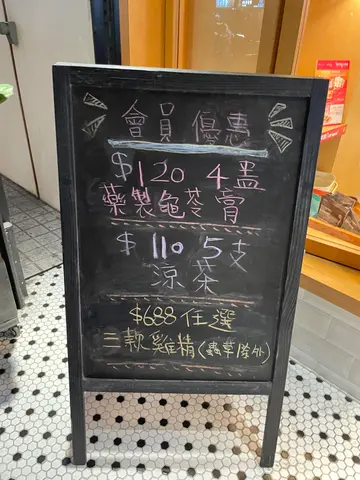 會員優惠
$120 4盅
藥製龜苓膏
$110 5支
涼茶
$688任選
三款雞精(蟲草除外)